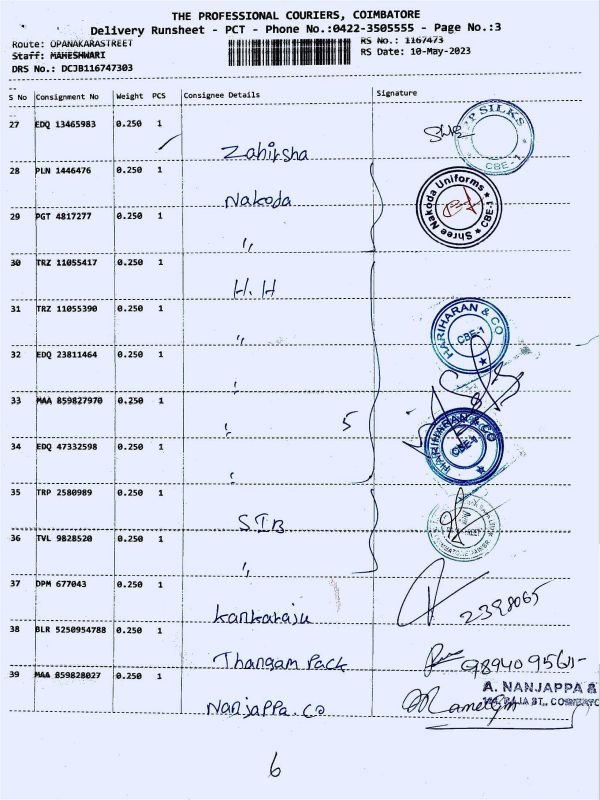 THE PROFESSIONAL COURIERS, COIMBATORE
Delivery Runsheet - PCT - Phone No.:0422-3505555 - Page No.:3
Route: OPANAKARASTREET RS No.: 1167473
Staff: MAHESHWARI RS Date: 10-May-2023
DRS No.: DCJB116747303
S No Consignment No Weight PCS Consignee Details Signature
27 EDQ 13465983 0.250 1
Zahirsha
P SILKS CBE-1
28 PLN 1446476 0.250 1
Nakoda
Shree Nakoda Uniforms CBE-1
29 PGT 4817277 0.250 1
"
30 TRZ 11055417 0.250 1
H.H
31 TRZ 11055390 0.250 1
"
HARIHARAN & CO CBE-1
32 EDQ 23811464 0.250 1
"
33 MAA 859827970 0.250 1
" 5
HARIHARAN & CO CBE-1
34 EDQ 47332598 0.250 1
"
35 TRP 2580989 0.250 1
SIB
36 TVL 9828520 0.250 1
"
37 DPM 677043 0.250 1
Kankaraju 2398065
38 BLR 5250954788 0.250 1
Thangam Pack
39 MAA 859828027 0.250 1
Nanjappa. co
A. NANJAPPA &
6